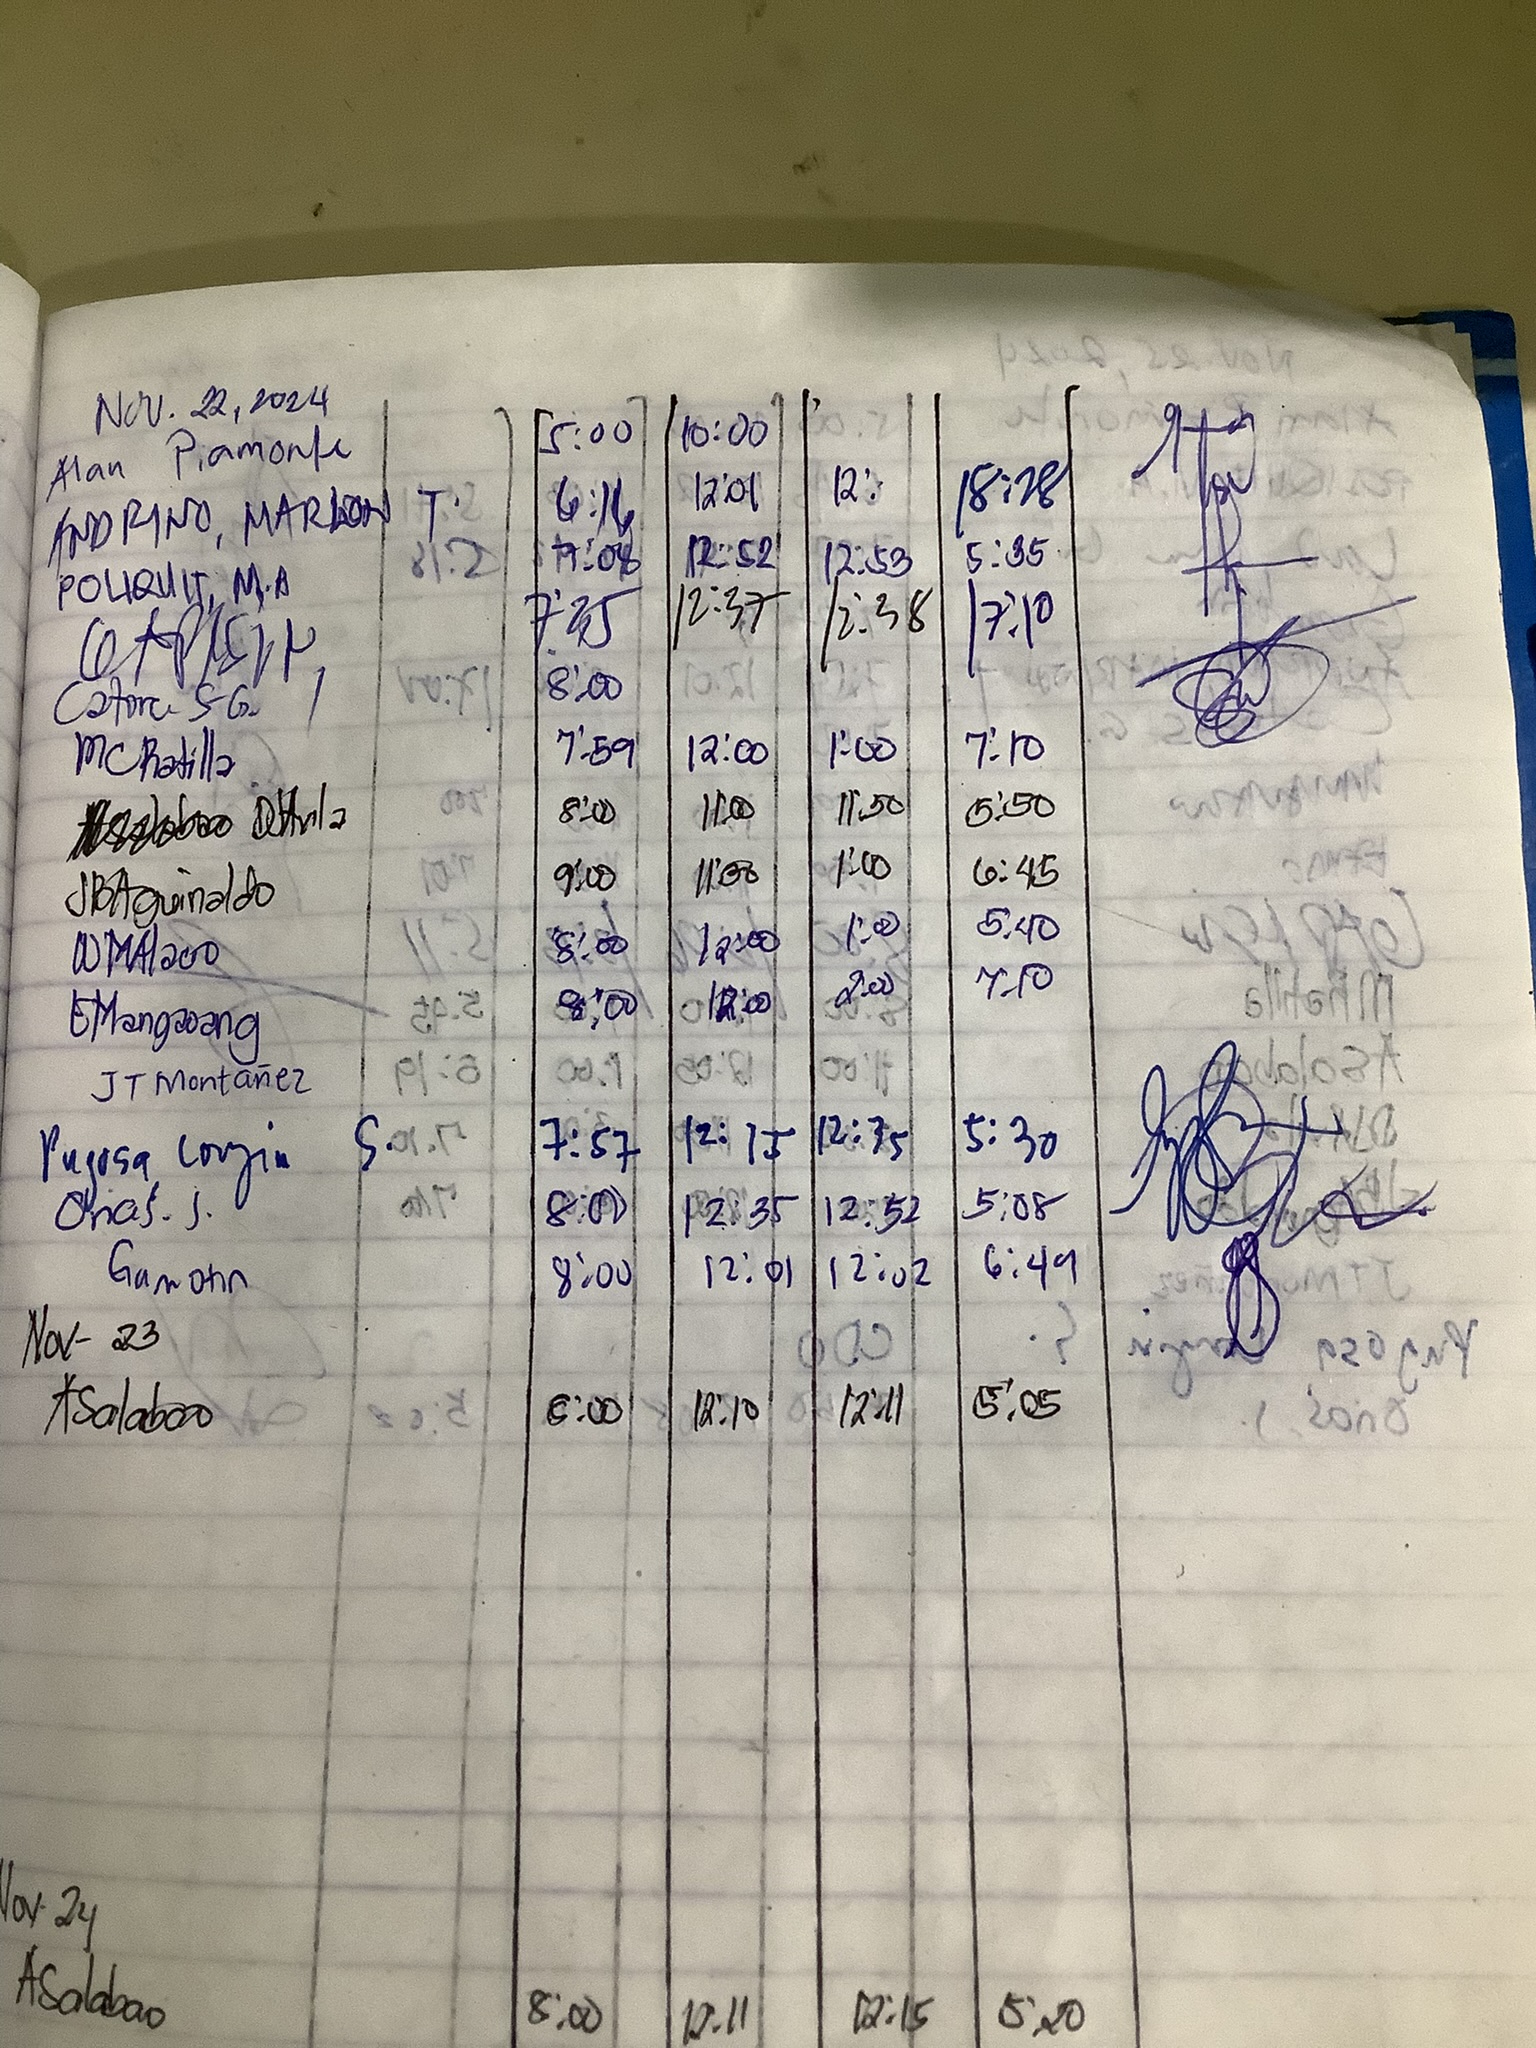 Nov. 22, 2024
Alan Piamonte 5:00 10:00
ANDRINO, MARLOON T. 6:16 12:01 12: 18:28
POLIQUIT, M.A 7:08 12:52 12:53 5:35
7:35 12:37 12:38 17:10
Catorce S.G. 8:00
MCRatilla 7:59 12:00 1:00 7:10
DVAvila 8:00 11:00 11:50 5:50
JBAguinaldo 9:00 11:00 1:00 6:45
WMAlaoo 8:00 12:00 1:00 5:40
EMangaoang 8:00 12:00 2:00 7:10
JT Montañez
Pugosa, Longin S. 7:57 12:15 12:35 5:30
Onas. J. 8:00 12:35 12:52 5:08
Gamotin 8:00 12:01 12:02 6:49
Nov- 23
ASalabao 6:00 12:10 12:11 5:05
Nov- 24
ASalabao 8:00 12:11 12:15 5:20